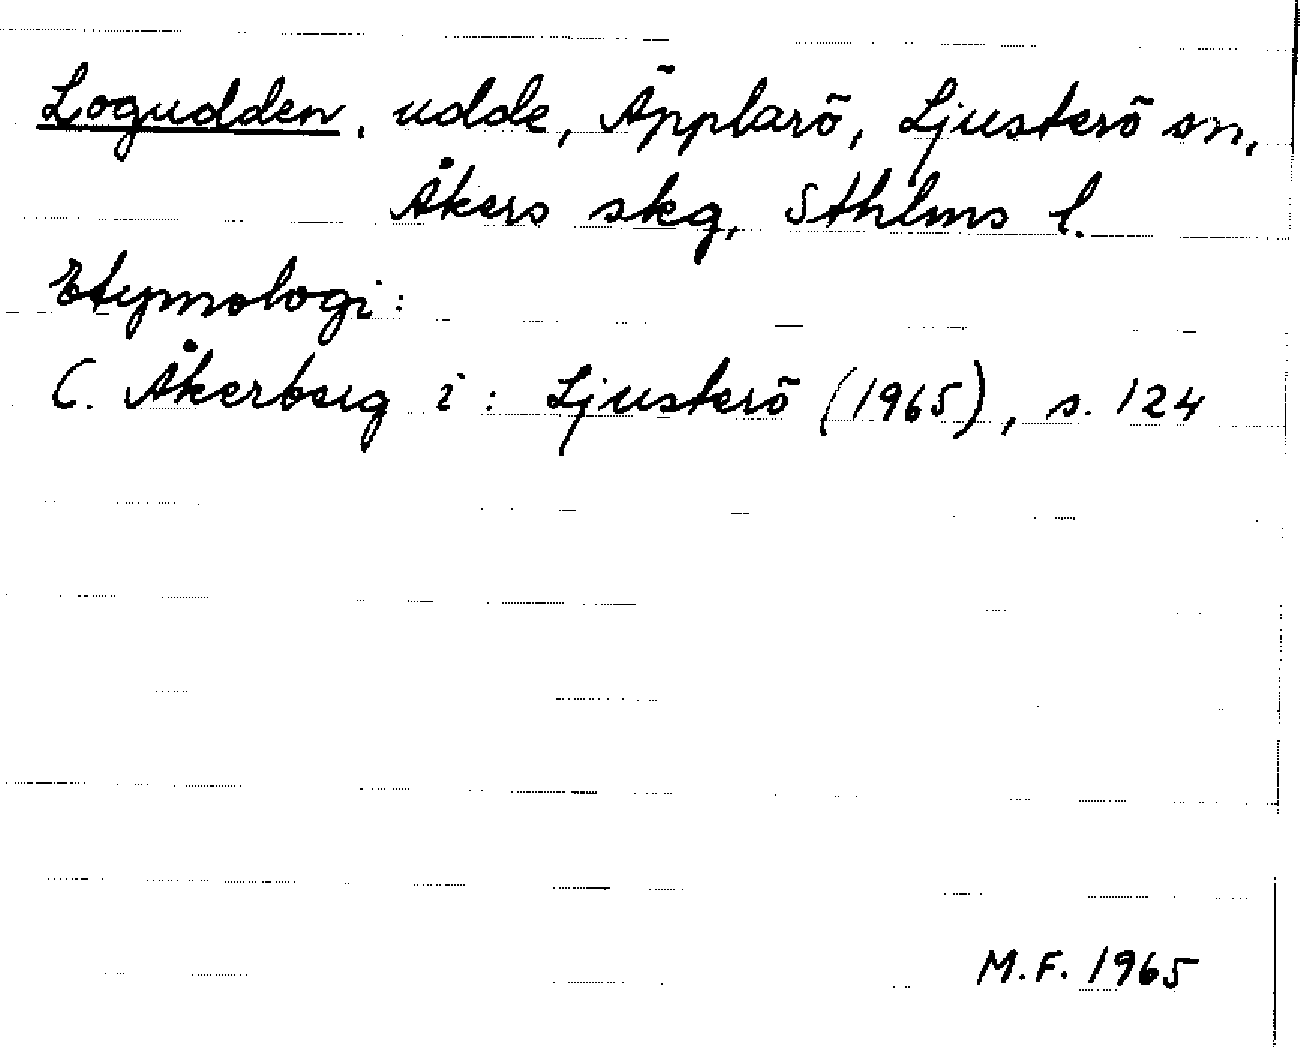 Logudden, udde, Äpplarö, Ljusterö sn,
Åkers skg, Sthlms l.
Etymologi:
C. Åkerberg i: Ljusterö (1965), s. 124
M.F. 1965